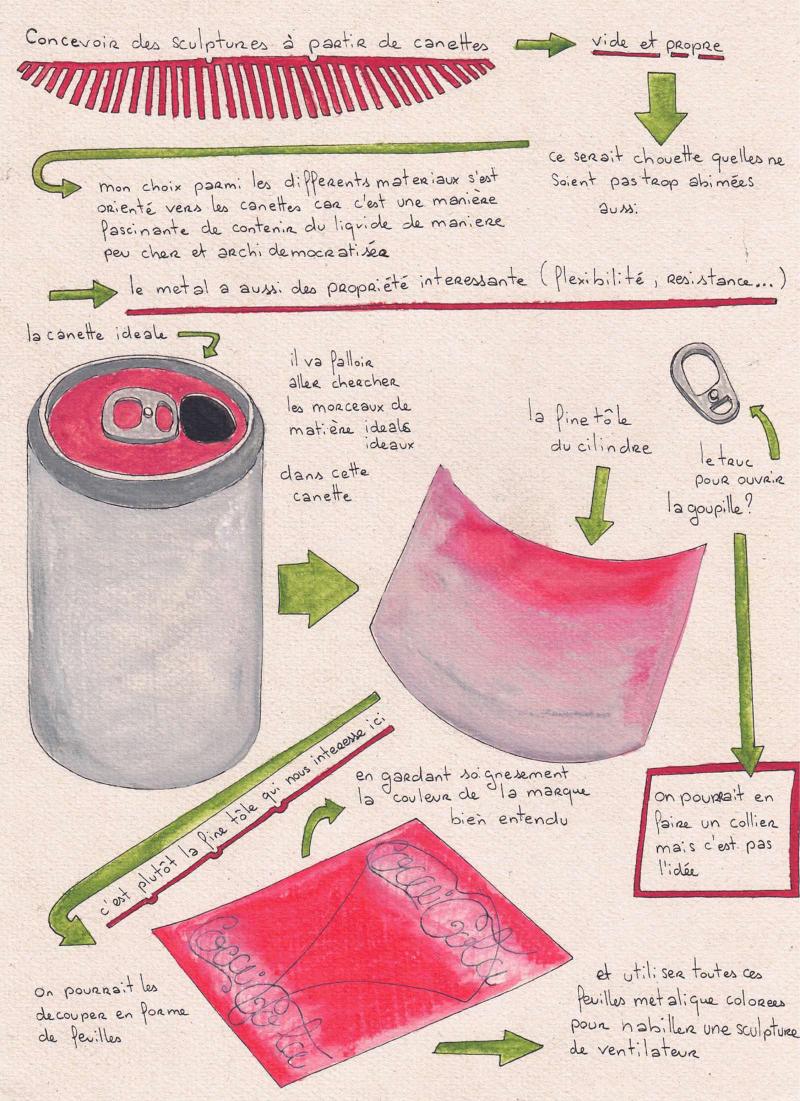 Concevoir des sculptures à partir de canettes
vide et propre
ce serait chouette quelles ne
soient pas trop abimées
aussi
mon choix parmi les differents materiaux s'est
orienté vers les canettes car c'est une manière
fascinante de contenir du liquide de maniere
peu cher et archi democratisér
le metal a aussi des propriété interessante (flexibilité, resistance...)
la canette ideale
il va falloir
aller chercher
les morceaux de
matière ideals
ideaux
dans cette
canette
la fine tôle
du cilindre
le truc
pour ouvrir
la goupille?
On pourrait en
faire un collier
mais c'est pas
l'idée
c'est plutôt la fine tôle qui nous interesse ici
en gardant soignesement
la couleur de la marque
bien entendu
Coca Cola
Coca Cola
on pourrait les
decouper en forme
de feuilles
et utiliser toutes ces
feuilles metalique colorees
pour habiller une sculpture
de ventilateur